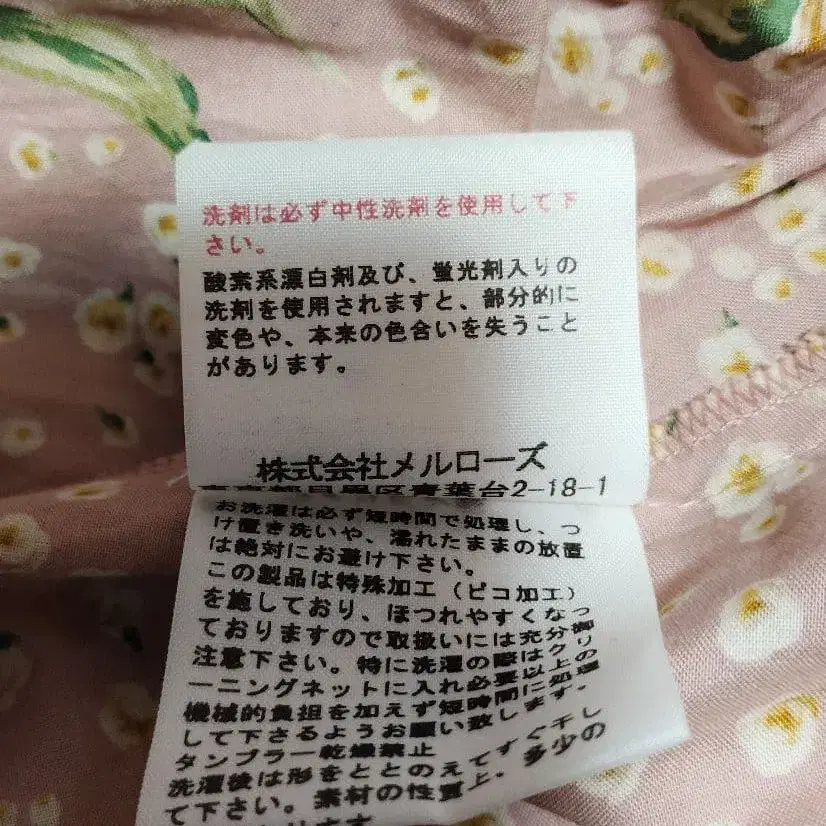 洗剤は必ず中性洗剤を使用して下
さい。
酸素系漂白剤及び、蛍光剤入りの
洗剤を使用されますと、部分的に
変色や、本来の色合いを失うこと
があります。
株式会社メルローズ
東京都目黒区青葉台2-18-1
お洗濯は必ず短時間で処理し、つ
け置き洗いや、濡れたままの放置
は絶対にお避け下さい。
この製品は特殊加工（ピコ加工）
を施しており、ほつれやすくなっ
ておりますので取扱いには充分御
注意下さい。特に洗濯の際はクリ
ーニングネットに入れ必要以上の
機械的負担を加えず短時間に処理
して下さるようお願い致します。
タンブラー乾燥禁止
洗濯後は形をととのえてすぐ干し
て下さい。素材の性質上、多少の